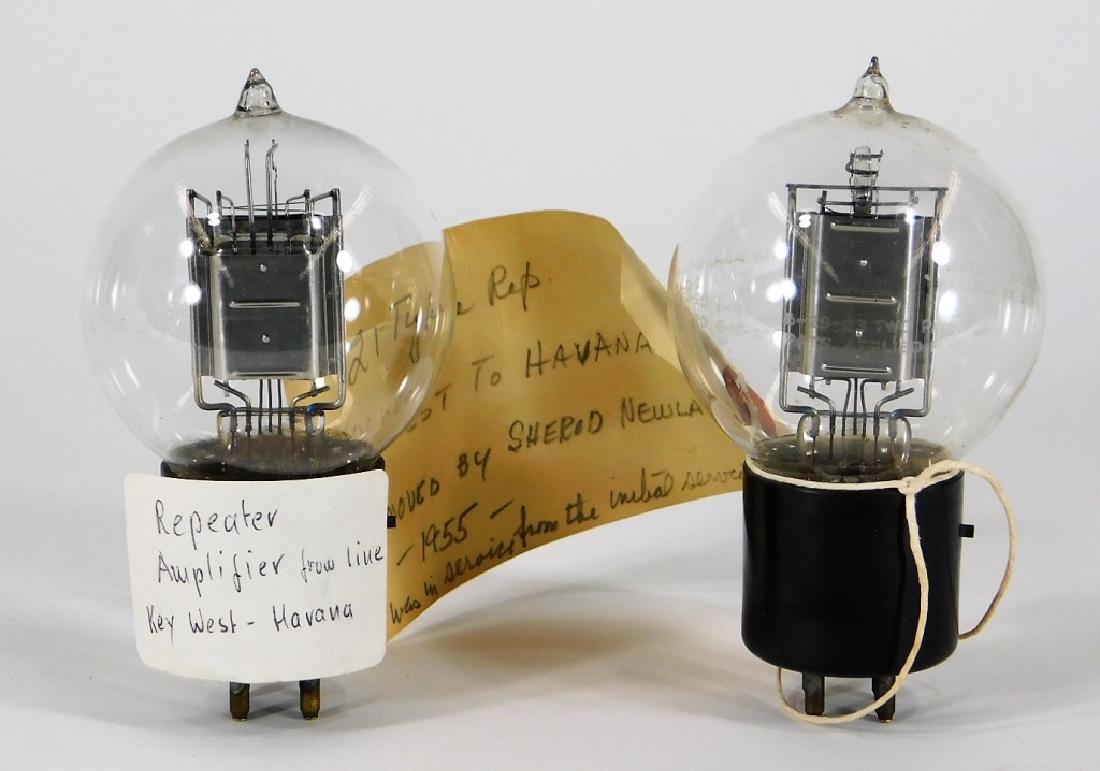 Repeater
Amplifier from line
Key West - Havana
21 Type Rep.
TO HAVANA
BY SHEROD NEWLA
- 1955 -
was in service from the initial service